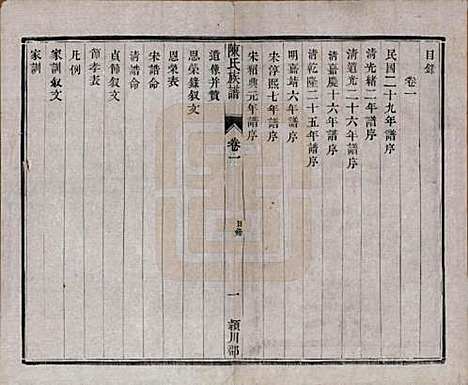 目錄
卷一
民國二十九年譜序
清光緒二年譜序
清道光二十六年譜序
清嘉慶十六年譜序
清乾隆二十五年譜序
明嘉靖六年譜序
宋淳熙七年譜序
宋紹興元年譜序
陳氏族譜
卷一
目錄
一
潁川郡
遺像并贊
恩榮錄叙文
恩榮表
宋誥命
清誥命
貞節叙文
節孝表
凡例
家訓叙文
家訓